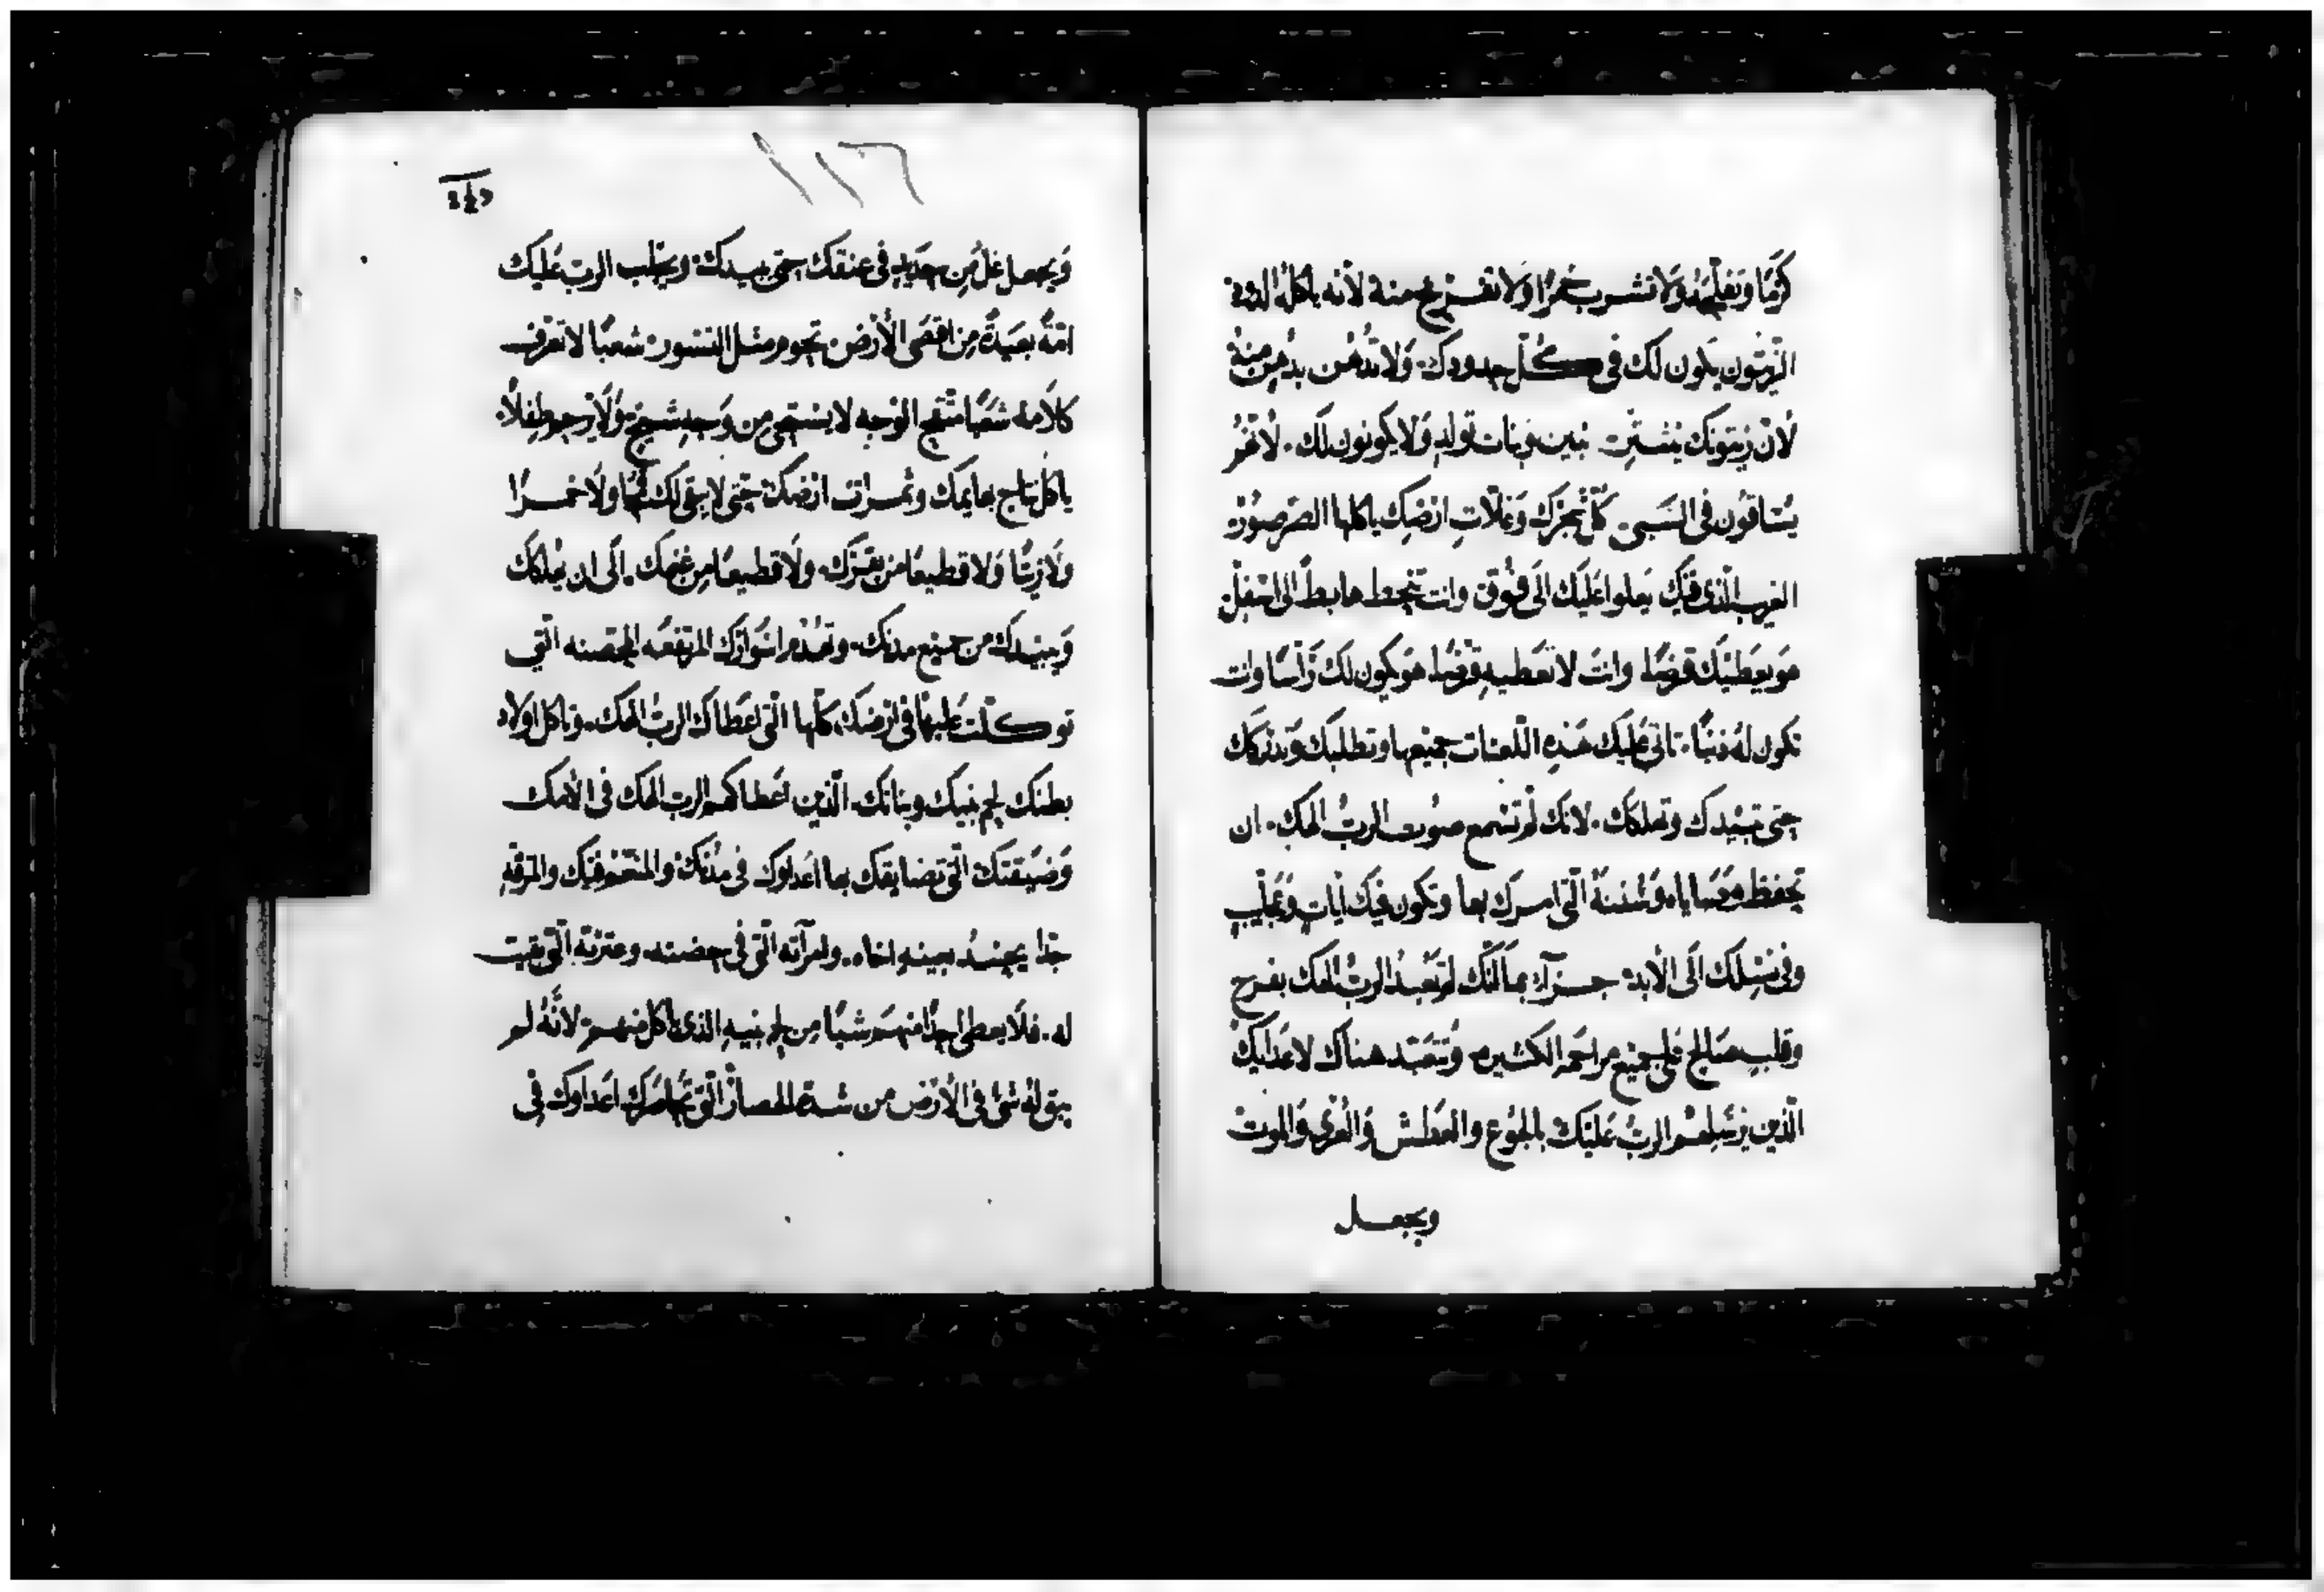 كرمًا وتفلحه ولا تشرب خمرًا ولا تفرح منه لانه ياكله الدود
الزيتون يكون لك في كل حدودك. ولا تدهن بدهن منه
لان زيتونك ينتثر بنين وبنات تولد ولا يكونون لك. لانهم
يُساقون في السبي كل شجرك وغلات ارضك ياكلها الصرصور
الغريب الذي فيك يعلوا عليك الى فوق وانت تنحط هابطًا الى اسفل
هو يعطيك قرضًا وانت لا تعطيه قرضًا هو يكون لك رأسًا وانت
تكون له ذنبًا. تاتي عليك هذه اللعنات جميعها وتطلبك وتدركك
حتى تبيدك وتهلكك. لانك لم تسمع صوت الرب الهك. ان
تحفظ وصاياه وسننه التي امرك بها وتكون فيك ايات وعجايب
وفي نسلك الى الابد جزآء بما انك لم تعبد الرب الهك بفرح
وقلب صالح على جميع مراحمه الكثيره وتتعبد هناك لاعدايك
الذين يرسلهم الرب عليك بالجوع والعطش والعري والموت
ويجعل
١١٦
ويجعل غل من حديد في عنقك حتى يبيدك. ويجلب الرب عليك
امة بعيدة من اقصى الارض تحوم مثل النسور. شعبًا لا تعرف
كلامه شعبًا متقح الوجه لا يستحي من وجه شيخ ولا يرحم طفلاً.
ياكل نتاج بهايمك وثمرات ارضك حتى لا يبقى لك قمحًا ولا خمرًا
ولا زيتًا ولا قطيعًا من بقرك. ولا قطيعًا من غنمك. الى ان يهلكك
ويبيدك من جميع مدنك. وتهدم اسوارك المرتفعه المحصنه التي
توكلت عليها في ارضك كلها التي اعطاك الرب الهك. وتاكل اولاد
بطنك لحم بنيك وبناتك الذين اعطاكهم الرب الهك في الامك
وضيقتك التي تضايقك بها اعداوك في مدنك والمتنعم فيك والمترفه
جدا يحسد بعينه اخاه. ولمرآته التي في حضنه. وعترته التي بقيت
له. فلا يعطى احدًا منهم شيًا من لحم بنيه الذي ياكل منهم لانه لم
يبق له شي في الارض من شدة الحصار التي تحاصرك اعداوك في